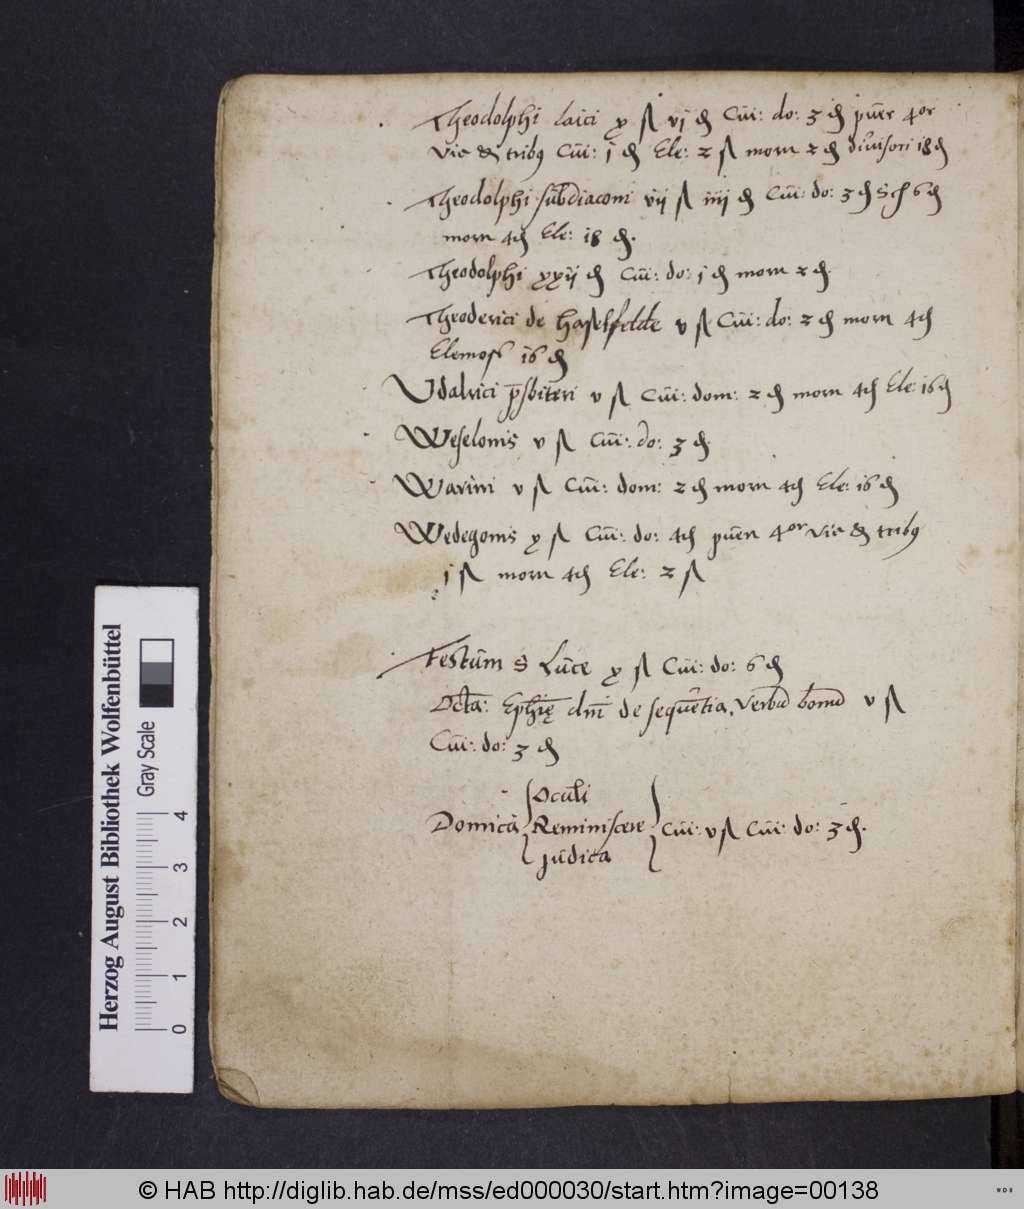 Theodolphi laici x ß vj ₰ Cui: do: 3 ₰ puer 4or
vic et tribus Cui: j ₰ Ele: 2 ß morn 2 ₰ divisori 18 ₰
Theodolphi subdiaconi vij ß iiij ₰ Cui: do: 3 ₰ Sch 6 ₰
morn 4 ₰ Ele: 18 ₰.
Theodolphi xxij ₰ Cui: do: j ₰ morn 2 ₰.
Theoderici de Haselfelde v ß Cui: do: 2 ₰ morn 4 ₰
Elemos 16 ₰
Udalrici p̄sbiteri v ß Cui: dom: 2 ₰ morn 4 ₰ Ele: 16 ₰
Weselonis v ß Cui: do: 3 ₰.
Warini v ß Cui: dom: 2 ₰ morn 4 ₰ Ele: 16 ₰
Wedegonis x ß Cui: do: 4 ₰ puen 4or vic et tribus
j ß morn 4 ₰ Ele: 2 ß
Festum S Luce x ß Cui: do: 6 ₰
Octa: Ephię dni de sequētia, Verbū bonū v ß
Cui: do: 3 ₰
Oculi
Domica Reminiscere Cui: v ß Cui: do: 3 ₰.
Judica
Herzog August Bibliothek Wolfenbüttel
Gray Scale
0 1 2 3 4
© HAB http://diglib.hab.de/mss/ed000030/start.htm?image=00138